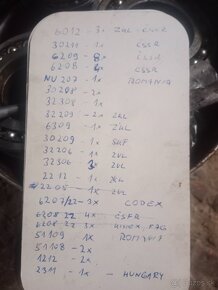 6012 - 3x ZKL - ČSSR
30211 - 1x ČSSR
6209 - 8x ČSSR
6208 - 6x ČSSR
NU 207 - 1x ROMANIA
30208 - 2x
32308 - 1x
32209 - 2x ZKL
6309 - 1x ZKL
30209 - 1x SKF
32206 - 1x ZVL
32306 - 3x ZVL
2212 - 1x ZKL
2208 - 1x ZVL
6207/22 - 9x CODEX
6208 22 4x ČSFR
6208 22 3x KINEX FAG
51109 1x ROMANIA
51108 - 2x
1212 - 2x
2311 - 1x - HUNGARY